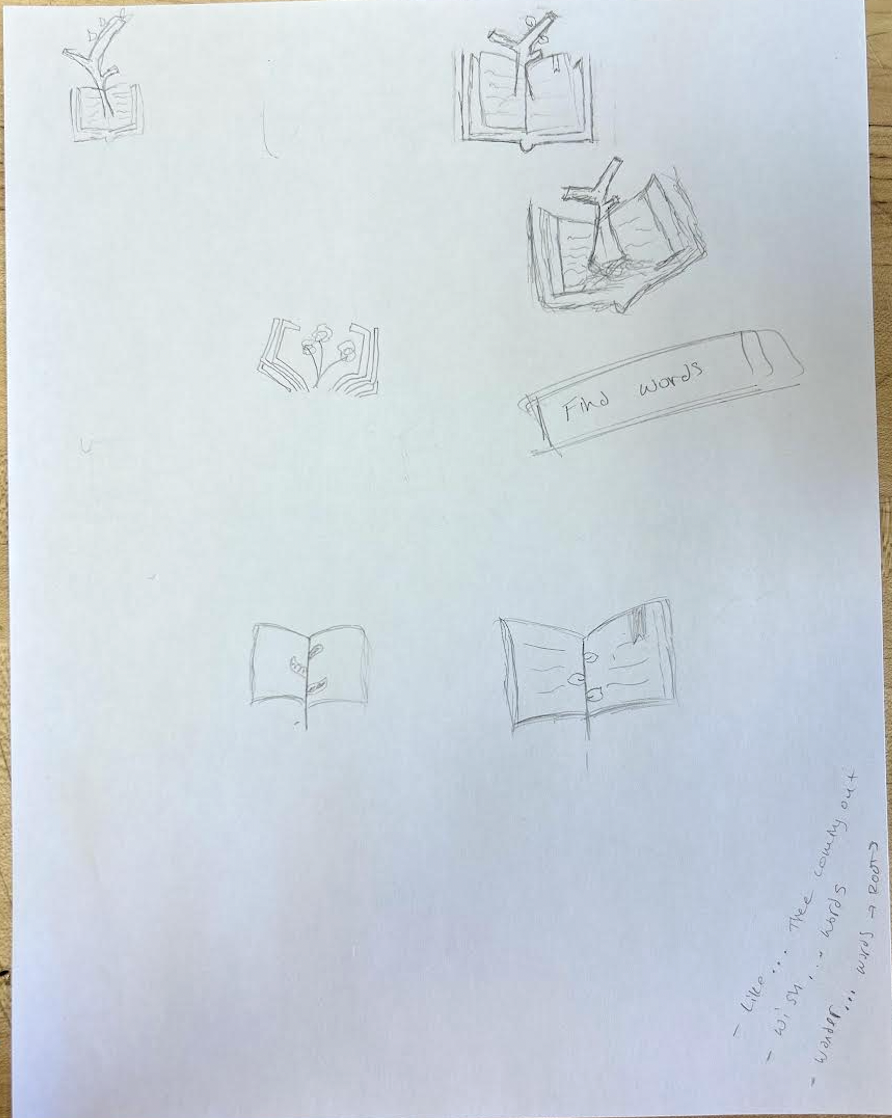 Find words
- Like... Thee coming out
- wish... words
- wonder... words → Roots